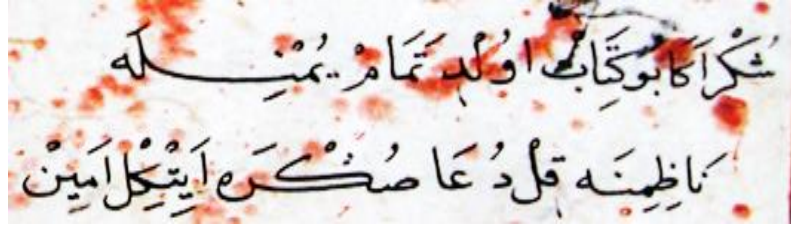 شُكْرْ اَكَا بُو كِتَابْ اوُلْدِ تَمَامْ يُمْنِــلَه
نَاظِمِنَه قِلْ دُعَا صُڭْــرَه اَيِتْكِلْ اَمِينْ